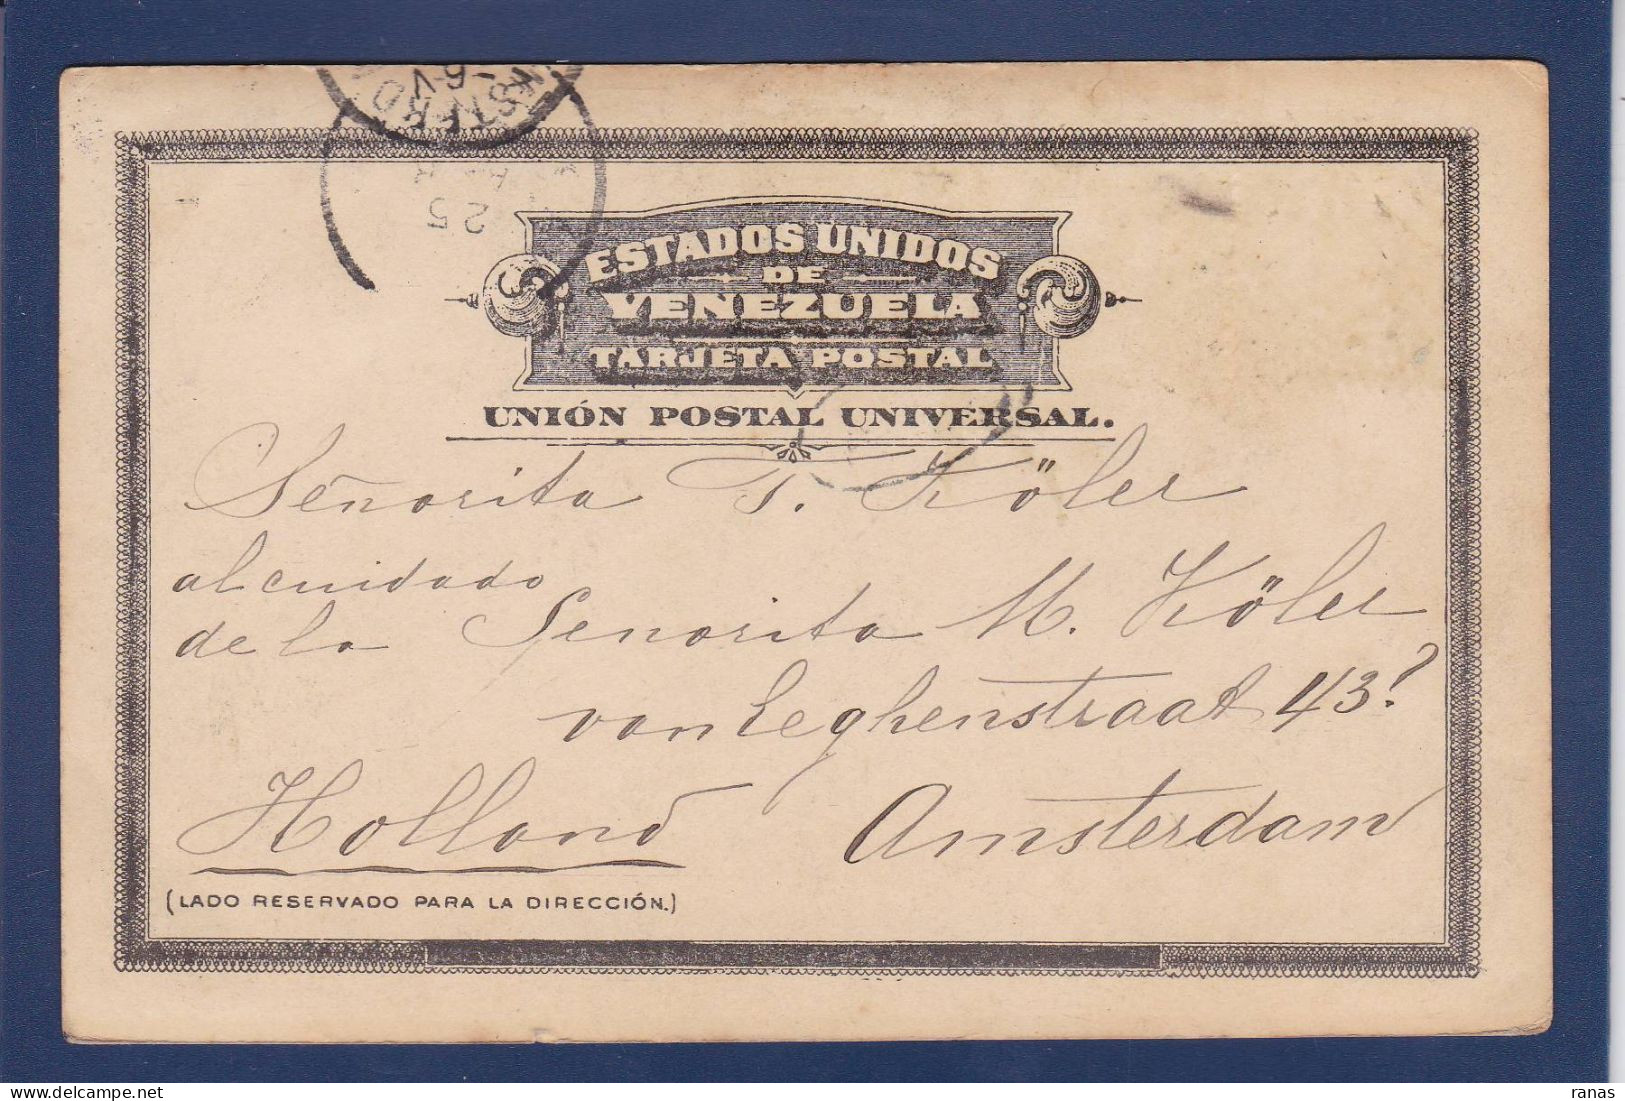 ESTADOS UNIDOS
DE
VENEZUELA
TARJETA POSTAL
UNIÓN POSTAL UNIVERSAL.
Señorita T. Köler
al cuidado
de la Senorita M. Köler
van Eeghenstraat 43?
Holland Amsterdam
(LADO RESERVADO PARA LA DIRECCIÓN.)
25
ranas